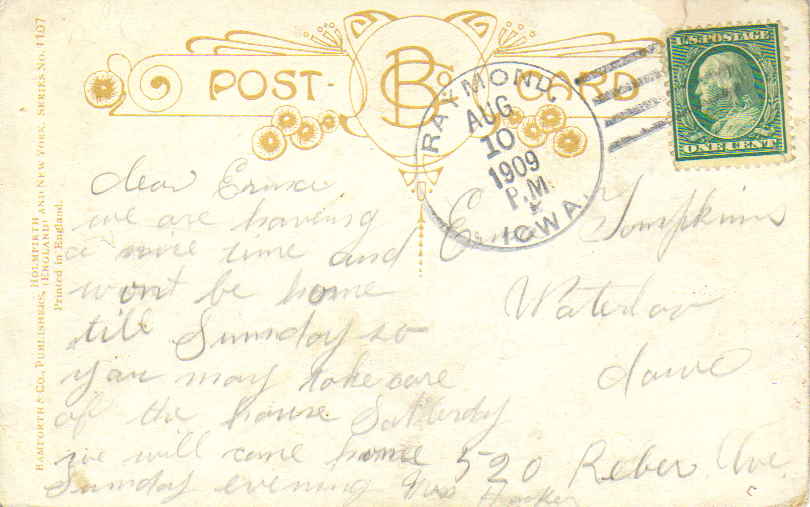 BAMFORTH & CO., PUBLISHERS, HOLMFIRTH (ENGLAND) AND NEW YORK. SERIES No. 1107
Printed in England.
POST- CARD
BCo
RAYMOND,
AUG
10
1909
P.M.
IOWA.
U.S. POSTAGE
ONE CENT
dear
we are having
a nice time and
wont be home
till Sunday so
you may take care
of the house Satterdy
we will come home
Sunday evening Mrs
Tompkins
Waterloo
Iowa
520 Reber Ave.